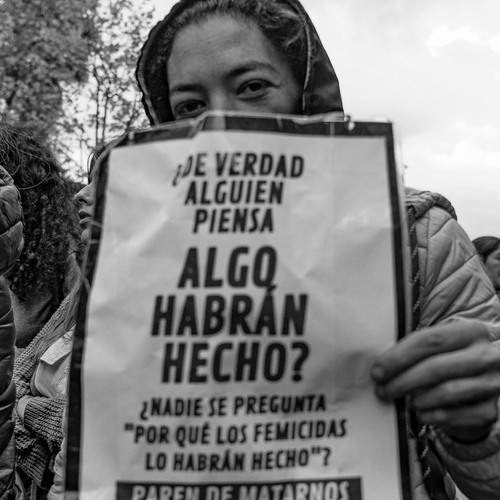 ¿DE VERDAD
ALGUIEN
PIENSA
ALGO
HABRÁN
HECHO?
¿NADIE SE PREGUNTA
"POR QUÉ LOS FEMICIDAS
LO HABRÁN HECHO"?
PAREN DE MATARNOS